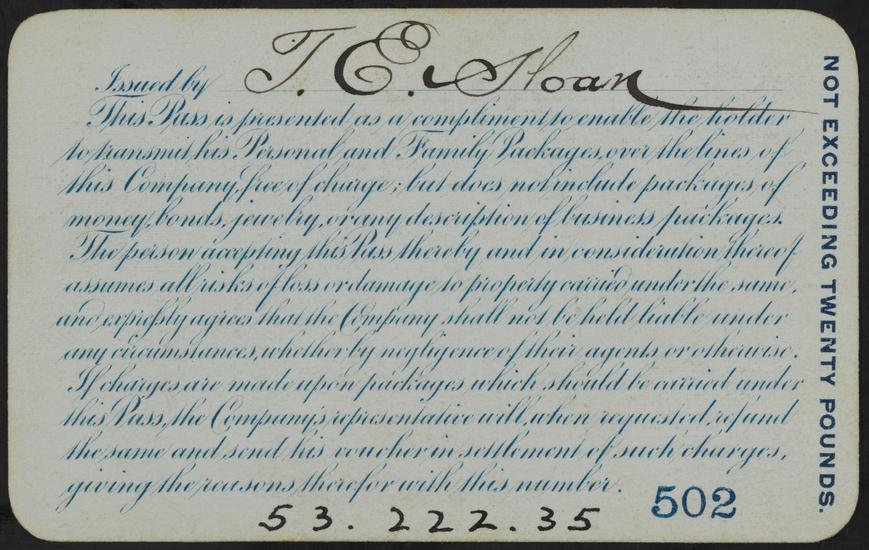 Issued by T. E. Sloan
This Pass is presented as a compliment to enable the holder
to transmit his Personal and Family Packages, over the lines of
this Company, free of charge; but does not include packages of
money, bonds, jewelry, or any description of business packages.
The person accepting this Pass thereby and in consideration thereof
assumes all risks of loss or damage to property carried under the same,
and expressly agrees that the Company shall not be held liable under
any circumstances, whether by negligence of their agents or otherwise.
If charges are made upon packages which should be carried under
this Pass, the Company's representative will, when requested, refund
the same and send his voucher in settlement of such charges,
giving the reasons therefor with this number.
502
53.222.35
NOT EXCEEDING TWENTY POUNDS.